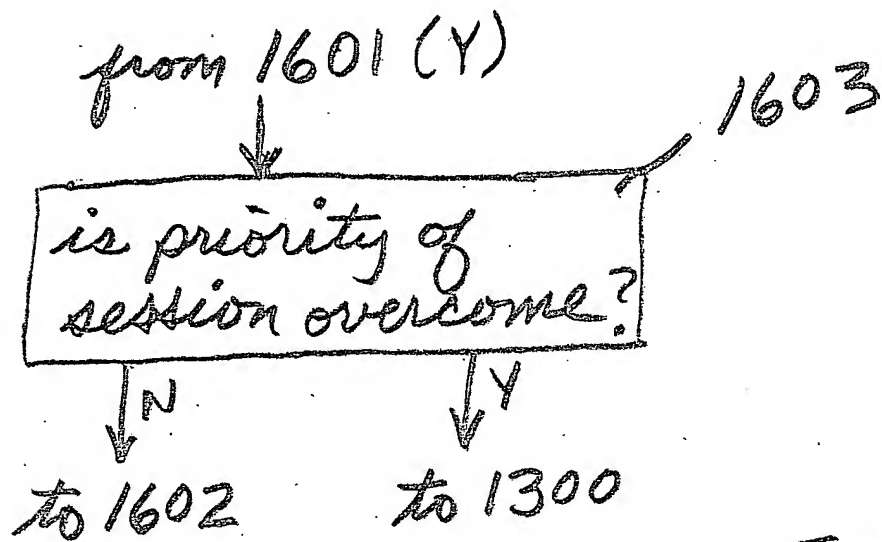 from 1601 (Y)
1603
is priority of
session overcome?
N
Y
to 1602
to 1300